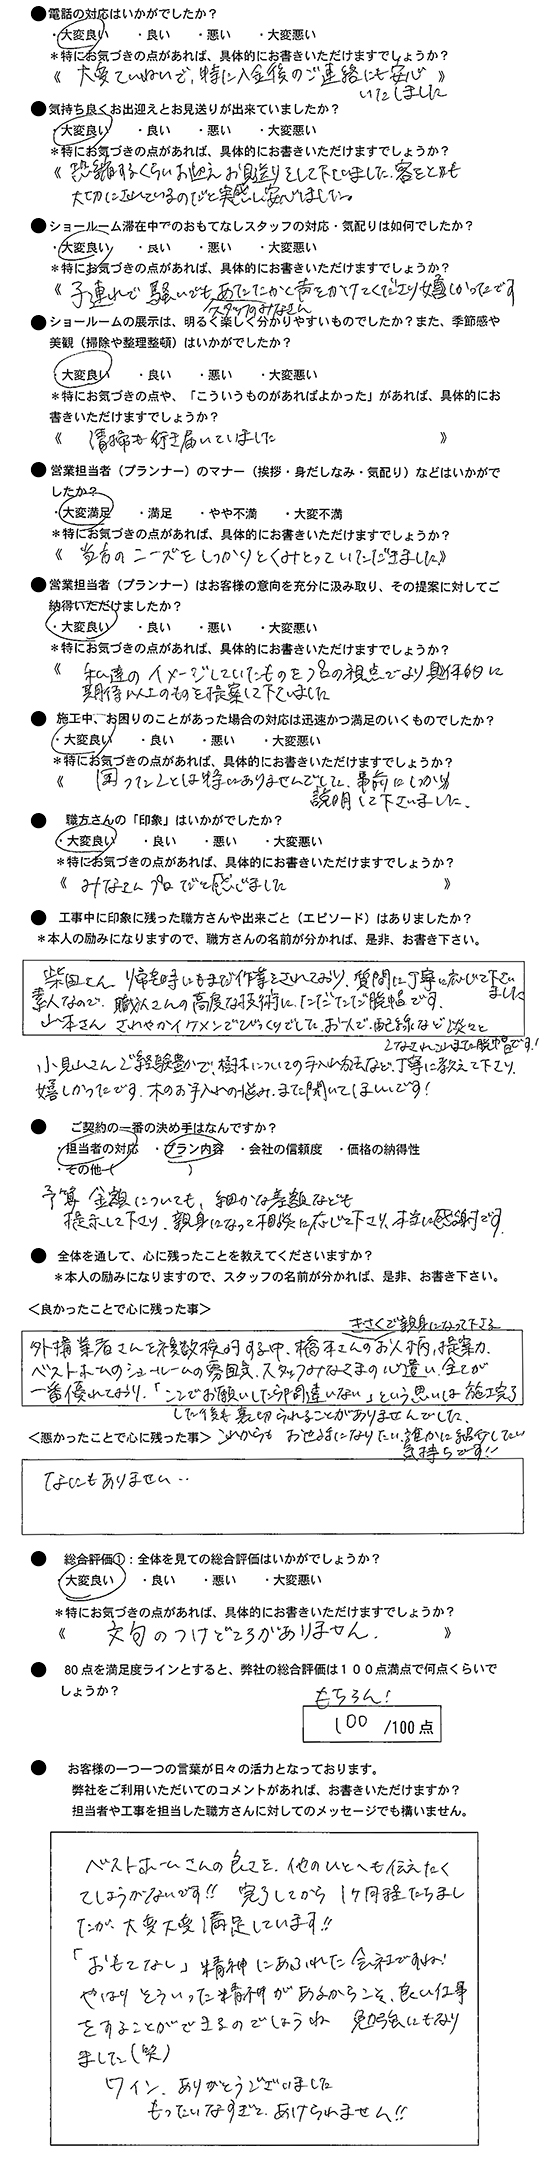 ●電話の対応はいかがでしたか？
・大変良い ・良い ・悪い ・大変悪い
＊特にお気づきの点があれば、具体的にお書きいただけますでしょうか？
《 大変ていねいで、特に入金後のご連絡にも安心 》
いたしました
●気持ち良くお出迎えとお見送りが出来ていましたか？
・大変良い ・良い ・悪い ・大変悪い
＊特にお気づきの点があれば、具体的にお書きいただけますでしょうか？
《 恐縮するくらいお迎えお見送りをして下さいました。客をとても
大切にされているのだと実感し安心しました。
●ショールーム滞在中でのおもてなしスタッフの対応・気配りは如何でしたか？
・大変良い ・良い ・悪い ・大変悪い
＊特にお気づきの点があれば、具体的にお書きいただけますでしょうか？
《 子連れで騒いでもあたたかく声をかけてくださり嬉しかったです
スタッフのみなさん
●ショールームの展示は、明るく楽しく分かりやすいものでしたか？また、季節感や
美観（掃除や整理整頓）はいかがでしたか？
・大変良い ・良い ・悪い ・大変悪い
＊特にお気づきの点や、「こういうものがあればよかった」があれば、具体的にお
書きいただけますでしょうか？
《 清掃も行き届いていました 》
●営業担当者（プランナー）のマナー（挨拶・身だしなみ・気配り）などはいかがで
したか？
・大変満足 ・満足 ・やや不満 ・大変不満
＊特にお気づきの点があれば、具体的にお書きいただけますでしょうか？
《 当方のニーズをしっかりとくみとっていただきました》
●営業担当者（プランナー）はお客様の意向を充分に汲み取り、その提案に対してご
納得いただけましたか？
・大変良い ・良い ・悪い ・大変悪い
＊特にお気づきの点があれば、具体的にお書きいただけますでしょうか？
《 私達のイメージしていたものをプロの視点でより具体的に
期待以上のものを提案して下さいました
● 施工中、お困りのことがあった場合の対応は迅速かつ満足のいくものでしたか？
・大変良い ・良い ・悪い ・大変悪い
＊特にお気づきの点があれば、具体的にお書きいただけますでしょうか？
《 困ったことは特にありませんでした。事前にしっかり
説明して下さいました。
● 職方さんの「印象」はいかがでしたか？
・大変良い ・良い ・悪い ・大変悪い
＊特にお気づきの点があれば、具体的にお書きいただけますでしょうか？
《 みなさんプロだと感じました 》
● 工事中に印象に残った職方さんや出来ごと（エピソード）はありましたか？
＊本人の励みになりますので、職方さんの名前が分かれば、是非、お書き下さい。
柴田さん 帰宅時にもまだ作業をされており、質問に丁寧に応じて下さい
ました
素人なので、職人さんの高度な技術に、ただただ脱帽です。
山本さん さわやかイケメンでびっくりでした。お一人で、配線など淡々と
こなされこれまた脱帽です！
小見山さん ご経験豊かで、樹木についての手入れ方法など、丁寧に教えて下さり、
嬉しかったです。木のお手入れの悩み、また聞いてほしいです！
● ご契約の一番の決め手はなんですか？
・担当者の対応 ・プラン内容 ・会社の信頼度 ・価格の納得性
・その他（ ）
予算 金額についても、細かな差額なども
提示して下さり、親身になって相談に応じて下さり、本当に感謝です。
● 全体を通して、心に残ったことを教えてくださいますか？
＊本人の励みになりますので、スタッフの名前が分かれば、是非、お書き下さい。
＜良かったことで心に残った事＞
きさくで親身になって下さる
外構業者さんを複数検討する中、橋本さんのお人柄、提案力、
ベストホームのショールームの雰囲気、スタッフみなさまの心遣い、全てが
一番優れており、「ここでお願いしたら間違いない」という思いは 施工完了
した後も裏切られることがありませんでした。
＜悪かったことで心に残った事＞
これからも お世話になりたい、誰かに紹介したい
気持ちです！！
なにもありません‥
● 総合評価①：全体を見ての総合評価はいかがでしょうか？
・大変良い ・良い ・悪い ・大変悪い
＊特にお気づきの点があれば、具体的にお書きいただけますでしょうか？
《 文句のつけどころがありません。 》
● 80点を満足度ラインとすると、弊社の総合評価は１００点満点で何点くらいで
しょうか？
もちろん！
100 /100点
● お客様の一つ一つの言葉が日々の活力となっております。
弊社をご利用いただいてのコメントがあれば、お書きいただけますか？
担当者や工事を担当した職方さんに対してのメッセージでも構いません。
ベストホームさんの良さを、他のひとへも伝えたく
てしょうがないです！！ 完了してから 1ヶ月程たちまし
たが、大変大変満足しています！！
「おもてなし」精神にあふれた会社ですね！
やはり そういった精神があるからこそ、良い仕事
をすることができるのでしょうね 勉強にもなり
ました（笑）
ワイン、ありがとうございました
もったいなすぎて、あけられません！！